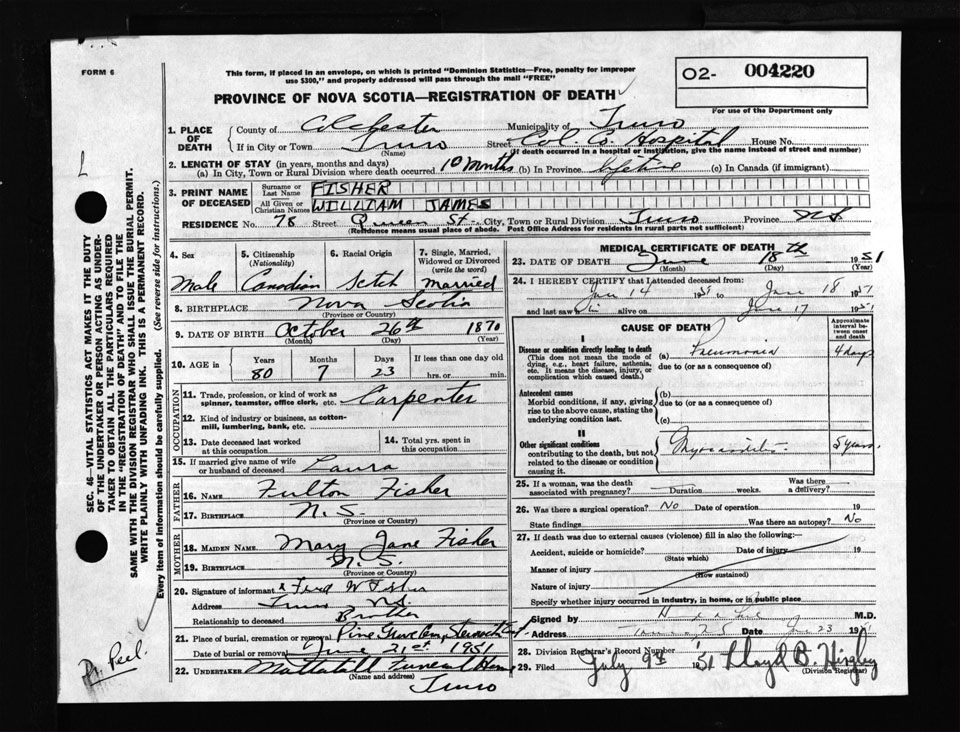 FORM 6
This form, if placed in an envelope, on which is printed "Dominion Statistics—Free, penalty for improper
use $300," and properly addressed will pass through the mail "FREE"
02- 004220
For use of the Department only
PROVINCE OF NOVA SCOTIA—REGISTRATION OF DEATH
1. PLACE OF DEATH
County of Colchester Municipality of Truro
If in City or Town Truro Street Col. Co. Hospital House No.
(Name) (If death occurred in a hospital or institution, give the name instead of street and number)
2. LENGTH OF STAY (in years, months and days)
(a) In City, Town or Rural Division where death occurred 10 Months (b) In Province lifetime (c) In Canada (if immigrant)
3. PRINT NAME OF DECEASED
Surname or Last Name FISHER
All Given or Christian Names WILLIAM JAMES
RESIDENCE No. 78 Street Queen St. City, Town or Rural Division Truro Province N.S.
(Residence means usual place of abode. Post Office Address for residents in rural parts not sufficient)
4. Sex 5. Citizenship (Nationality) 6. Racial Origin 7. Single, Married, Widowed or Divorced (write the word)
Male Canadian Scotch Married
8. BIRTHPLACE Nova Scotia
(Province or Country)
9. DATE OF BIRTH October 26th 1870
(Month) (Day) (Year)
10. AGE in Years Months Days If less than one day old
80 7 23 hrs. or min.
OCCUPATION
11. Trade, profession, or kind of work as spinner, teamster, office clerk, etc. Carpenter
12. Kind of industry or business, as cotton-mill, lumbering, bank, etc.
13. Date deceased last worked at this occupation
14. Total yrs. spent in this occupation
15. If married give name of wife or husband of deceased Laura
FATHER
16. NAME Fulton Fisher
17. BIRTHPLACE N.S.
(Province or Country)
MOTHER
18. MAIDEN NAME Mary Jane Fisher
19. BIRTHPLACE N.S.
(Province or Country)
20. Signature of informant x Fred W Fisher
Address Truro N.S.
Relationship to deceased Brother
21. Place of burial, cremation or removal Pine Grove Cem,
Date of burial or removal June 21st 1951
22. UNDERTAKER Mattatall Funeral Home
(Name and address)
Truro
MEDICAL CERTIFICATE OF DEATH
23. DATE OF DEATH June 18th 1951
(Month) (Day) (Year)
24. I HEREBY CERTIFY that I attended deceased from:
14 19 to June 18 19
and last saw him alive on June 17 1951
CAUSE OF DEATH
Approximate interval between onset and death
I
Disease or condition directly leading to death (a) Pneumonia 4 days
(This does not mean the mode of dying, e.g., heart failure, asthenia, etc. It means the disease, injury, or complication which caused death.)
due to (or as a consequence of)
Antecedent causes (b)
Morbid conditions, if any, giving rise to the above cause, stating the underlying condition last.
due to (or as a consequence of)
(c)
II
Other significant conditions contributing to the death, but not related to the disease or condition causing it.
Myocarditis 5 years.
25. If a woman, was the death associated with pregnancy? Duration weeks. Was there a delivery?
26. Was there a surgical operation? No Date of operation 19
State findings Was there an autopsy? No
27. If death was due to external causes (violence) fill in also the following:—
Accident, suicide or homicide? Date of injury 19
(State which)
Manner of injury
(How sustained)
Nature of injury
Specify whether injury occurred in industry, in home, or in public place
Signed by M.D.
Address Date 23 19
28. Division Registrar's Record Number
29. Filed July 9th 1951 Lloyd B. Higley
(Division Registrar)
SEC. 46—VITAL STATISTICS ACT MAKES IT THE DUTY
OF THE UNDERTAKER OR PERSON ACTING AS UNDER-
TAKER TO OBTAIN ALL THE PARTICULARS REQUIRED
IN THE "REGISTRATION OF DEATH" AND TO FILE THE
SAME WITH THE DIVISION REGISTRAR WHO SHALL ISSUE THE BURIAL PERMIT.
WRITE PLAINLY WITH UNFADING INK. THIS IS A PERMANENT RECORD.
Every item of information should be carefully supplied. (See reverse side for instructions.)
Dr. Peel.